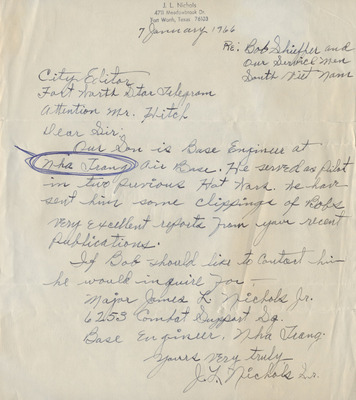 J. L. Nichols
4711 Meadowbrook Dr.
Fort Worth, Texas 76103
7 January 1966
Re: Bob Shieffer and
Our Service Men
South Viet Nam
City Editor
Fort Worth Star Telegram
Attention Mr. Hitch
Dear Sir:
Our Son is Base Engineer at
Nha Trang Air Base. He served as pilot
in two previous Hot Wars. We have
sent him some clippings of Bobs
very excellent reports from your recent
publications.
If Bob should like to contact him
he would inquire for -
Major James L. Nichols Jr.
6253 Combat Support Sq.
Base Engineer, Nha Trang.
Yours very truly
J. L. Nichols Sr.